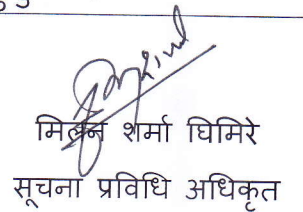 मिलन शर्मा घिमिरे
सूचना प्रविधि अधिकृत